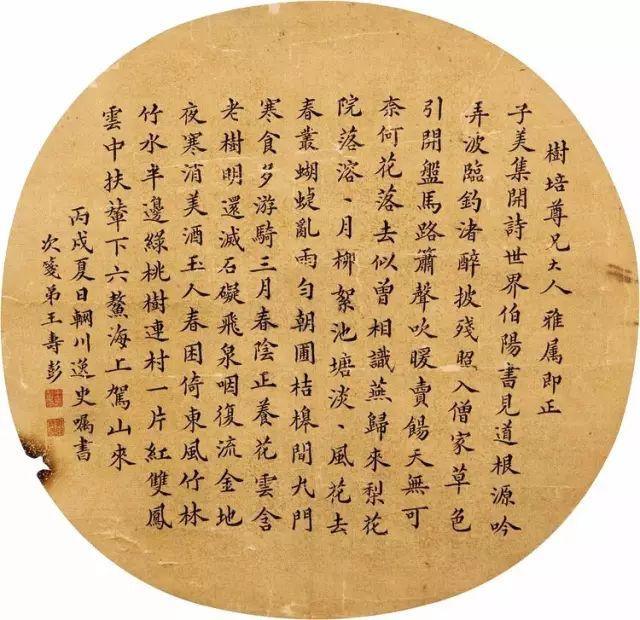 樹培尊兄大人雅属即正
子美集開詩世界伯陽書見道根源吟
弄波臨釣渚醉披殘照入僧家草色
引開盤馬路簫聲吹暖賣餳天無可
奈何花落去似曾相識燕歸來梨花
院落溶、月柳絮池塘淡、風花去
春叢蝴蜨亂雨勻朝圃桔槔閒九門
寒食多游騎三月春陰正養花雲含
老樹明還滅石礙飛泉咽復流金地
夜寒消美酒玉人春困倚東風竹林
竹水半邊綠桃樹連村一片紅雙鳳
雲中扶輦下六鰲海上駕山來
丙戌夏日輞川逸史囑書
次箋弟王壽彭